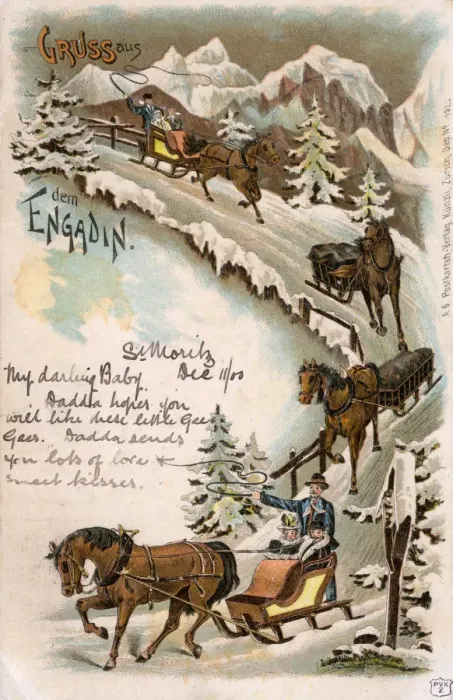 GRUSS aus
dem
ENGADIN.
St Moritz
My darling Baby Dec 11/00
Dadda hopes you
will like these little Gee
Gees. Dadda sends
you lots of love &
sweet kisses.
A.G. Postkarten-Verlag Künzli, Zürich, Dep. No
PVK
Z